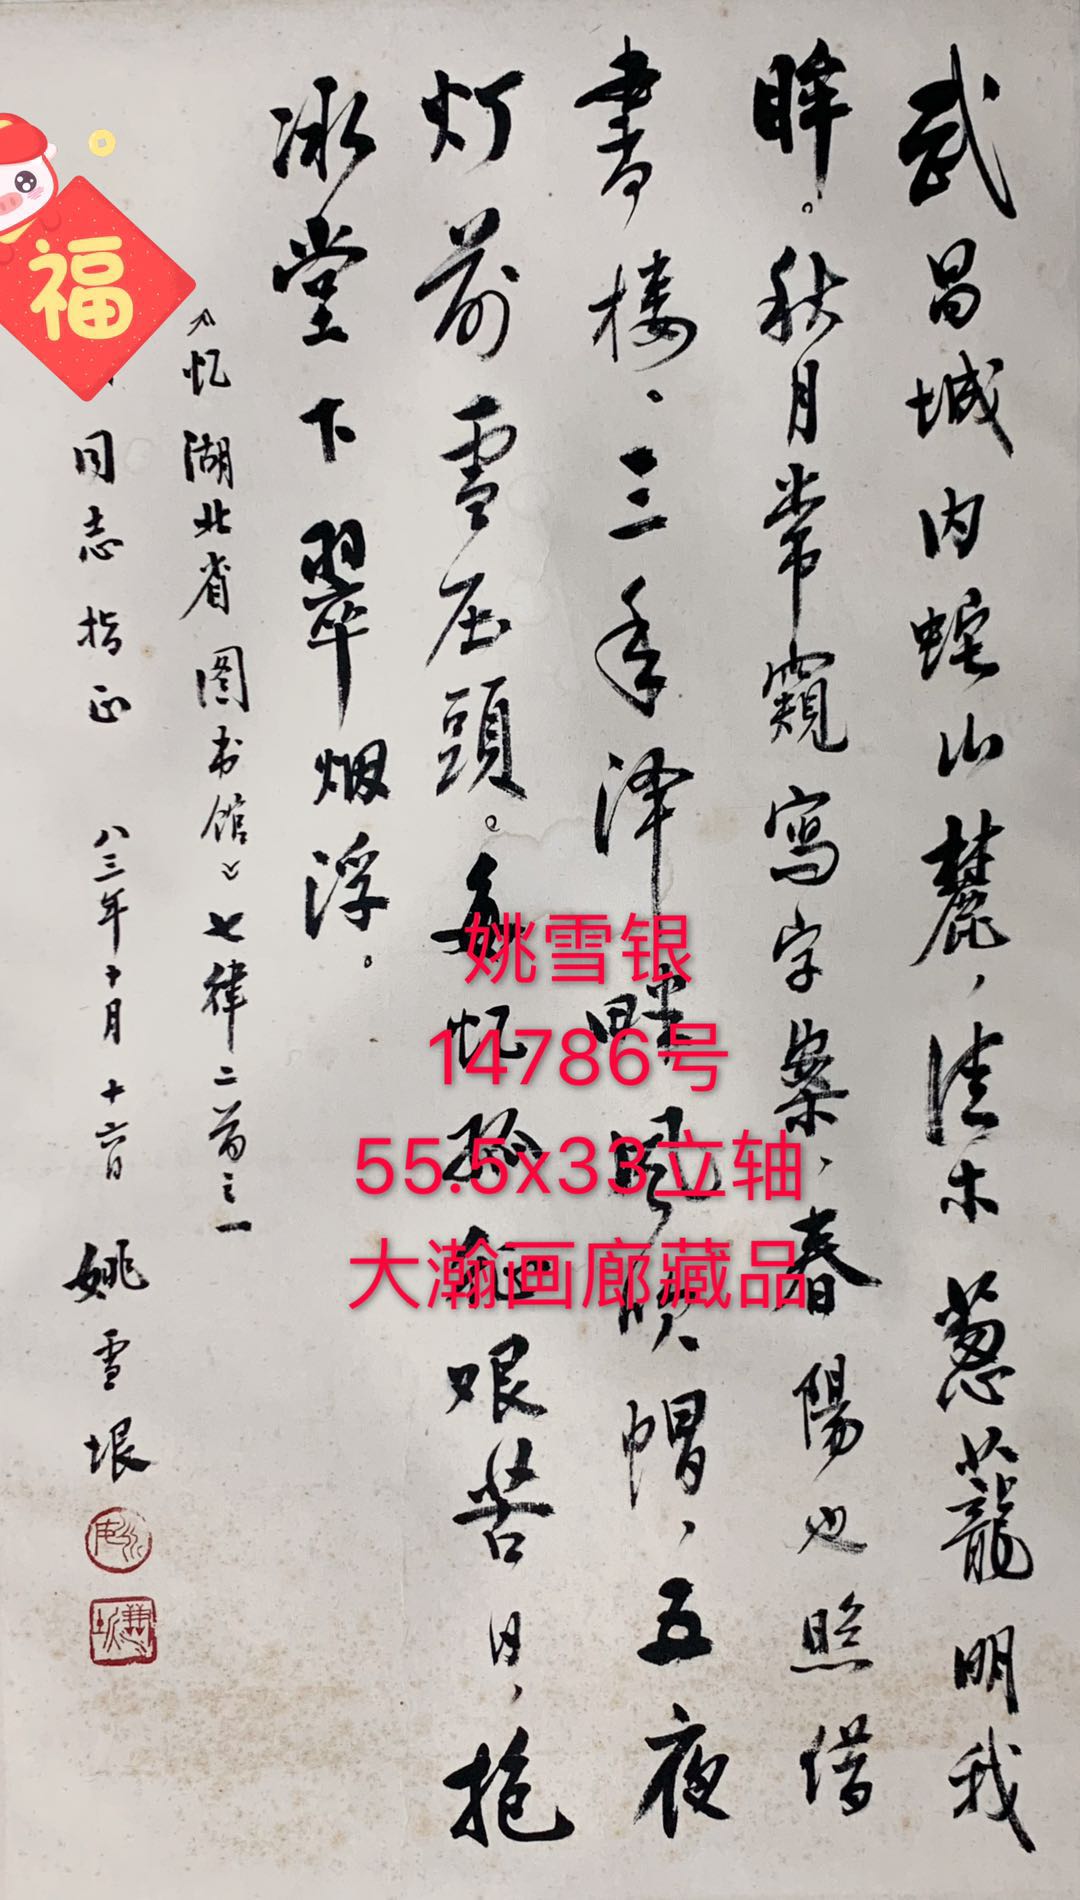 武昌城内蛇山麓，佳木葱蘢明我
眸。秋月常窺寫字案、春陽也照借
書樓、三年泽畔風吹帽、五夜
灯前雪压頭。每忆孤艰苦日，抱
冰堂下翠烟浮。
《忆湖北省图书馆》七律二首之一
同志指正 八三年十月十六日 姚雪垠
福
姚雪银
14786号
55.5x33立轴
大瀚画廊藏品